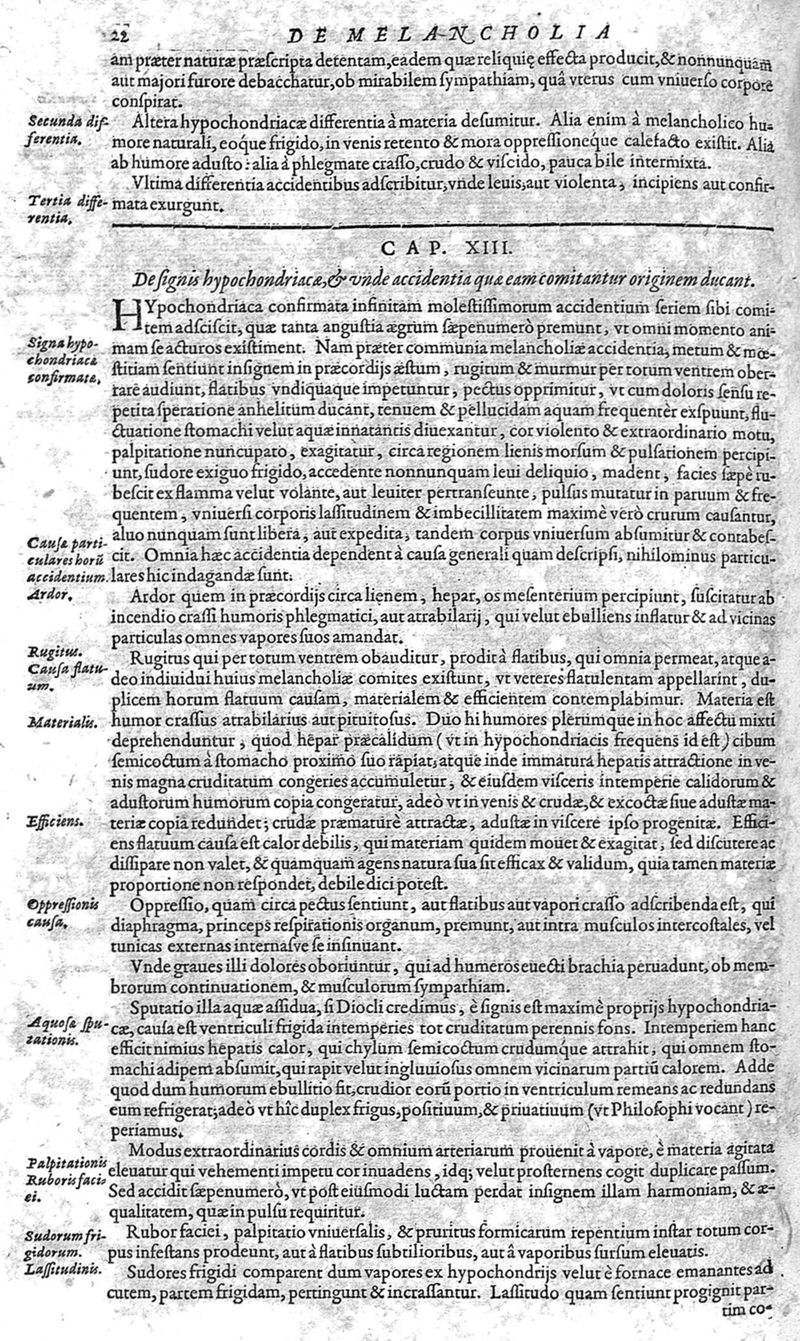 22 DE MELANCHOLIA
am præter naturæ præscripta detentam, eadem quæ reliquię effecta producit, & nonnunquam
aut majori furore debacchatur, ob mirabilem sympathiam, quâ vterus cum vniuerso corpore
conspirat.
Secunda dif-
ferentia.
Altera hypochondriacæ differentia à materia desumitur. Alia enim à melancholico hu-
more naturali, eoque frigido, in venis retento & mora oppressioneque calefacto existit. Alia
ab humore adusto: alia à phlegmate crasso, crudo & viscido, pauca bile intermixta.
Tertia diffe-
rentia.
Vltima differentia accidentibus adscribitur, vnde leuis, aut violenta, incipiens aut confir-
mata exurgunt.
CAP. XIII.
De signis hypochondriacæ, & vnde accidentia quæ eam comitantur originem ducant.
Signa hypo-
chondriacæ
confirmatæ.
HYpochondriaca confirmata infinitam molestissimorum accidentium seriem sibi comi-
tem adsciscit, quæ tanta angustia ægrum sæpenumerò premunt, vt omni momento ani-
mam se acturos existiment. Nam præter communia melancholiæ accidentia, metum & mœ-
stitiam sentiunt insignem in præcordijs æstum, rugitum & murmur per totum ventrem ober-
rare audiunt, flatibus vndiquaque impetuntur, pectus opprimitur, vt cum doloris sensu re-
petita speratione anhelitum ducant, tenuem & pellucidam aquam frequentèr exspuunt, flu-
ctuatione stomachi velut aquæ innatantis diuexantur, cor violento & extraordinario motu,
palpitatione nuncupato, exagitatur, circa regionem lienis morsum & pulsationem percipi-
unt, sudore exiguo frigido, accedente nonnunquam leui deliquio, madent, facies sæpè ru-
bescit ex flamma velut volante, aut leuiter pertranseunte, pulsus mutatur in paruum & fre-
quentem, vniuersi corporis lassitudinem & imbecillitatem maximè verò crurum causantur,
aluo nunquam sunt libera, aut expedita, tandem corpus vniuersum absumitur & contabes-
cit. Omnia hæc accidentia dependent à causa generali quam descripsi, nihilominus particu-
lares hic indagandæ sunt.
Causæ parti-
culares horũ
accidentium.
Ardor.
Ardor quem in præcordijs circa lienem, hepar, os mesenterium percipiunt, suscitatur ab
incendio crassi humoris phlegmatici, aut atrabilarij, qui velut ebulliens inflatur & ad vicinas
particulas omnes vapores suos amandat.
Rugitus.
Causa flatu-
um.
Rugitus qui per totum ventrem obauditur, prodit à flatibus, qui omnia permeat, atque a-
deo indiuidui huius melancholiæ comites existunt, vt veteres flatulentam appellarint, du-
plicem horum flatuum causam, materialem & efficientem contemplabimur. Materia est
Materialis.
humor crassus atrabilarius aut pituitosus. Duo hi humores plerumque in hoc affectu mixti
deprehenduntur, quod hepar præcalidum (vt in hypochondriacis frequens id est) cibum
semicoctum à stomacho proximo suo rapiat, atque inde immatura hepatis attractione in ve-
nis magna cruditatum congeries accumuletur, & eiusdem visceris intemperie calidorum &
adustorum humorum copia congeratur, adeò vt in venis & crudæ, & excoctæ siue adustæ ma-
teriæ copia redundet; crudæ præmaturè attractæ, adustæ in viscere ipso progenitæ. Effici-
Efficiens.
ens flatuum causa est calor debilis, qui materiam quidem mouet & exagitat, sed discutere ac
dissipare non valet, & quamquam agens natura sua sit efficax & validum, quia tamen materiæ
proportione non respondet, debile dici potest.
Oppressionis
causa.
Oppressio, quam circa pectus sentiunt, aut flatibus aut vapori crasso adscribenda est, qui
diaphragma, princeps respirationis organum, premunt, aut intra musculos intercostales, vel
tunicas externas internasve se insinuant.
Vnde graues illi dolores oboriuntur, qui ad humeros euecti brachia peruadunt, ob mem-
brorum continuationem, & musculorum sympathiam.
Aquosæ spu-
tationis.
Sputatio illa aquæ assidua, si Diocli credimus, è signis est maximè proprijs hypochondria-
cæ, causa est ventriculi frigida intemperies tot cruditatum perennis fons. Intemperiem hanc
efficit nimius hepatis calor, qui chylum semicoctum crudumque attrahit, qui omnem sto-
machi adipem absumit, qui rapit velut ingluuiosus omnem vicinarum partiũ calorem. Adde
quod dum humorum ebullitio fit, crudior eorũ portio in ventriculum remeans ac redundans
eum refrigerat; adeò vt hîc duplex frigus, positiuum, & priuatiuum (vt Philosophi vocant) re-
periamus.
Palpitationis
Ruboris facis
ei.
Modus extraordinarius cordis & omnium arteriarum prouenit à vapore, è materia agitata
eleuatur qui vehementi impetu cor inuadens, idq; velut prosternens cogit duplicare passum.
Sed accidit sæpenumerò, vt post eiusmodi luctam perdat insignem illam harmoniam, & æ-
qualitatem, quæ in pulsu requiritur.
Sudorum fri-
gidorum.
Lassitudinis.
Rubor faciei, palpitatio vniuersalis, & pruritus formicarum repentium instar totum cor-
pus infestans prodeunt, aut à flatibus subtilioribus, aut â vaporibus sursum eleuatis.
Sudores frigidi comparent dum vapores ex hypochondrijs velut è fornace emanantes ad
cutem, partem frigidam, pertingunt & incrassantur. Lassitudo quam sentiunt progignit par-
tim co-